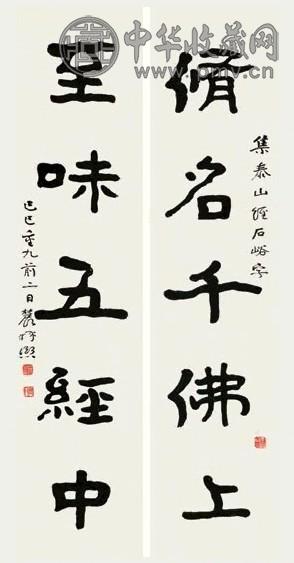 中华收藏网
www.pmv.cn
集泰山經石峪字
脩名千佛上
至味五經中
己巳重九前二日農髯熙